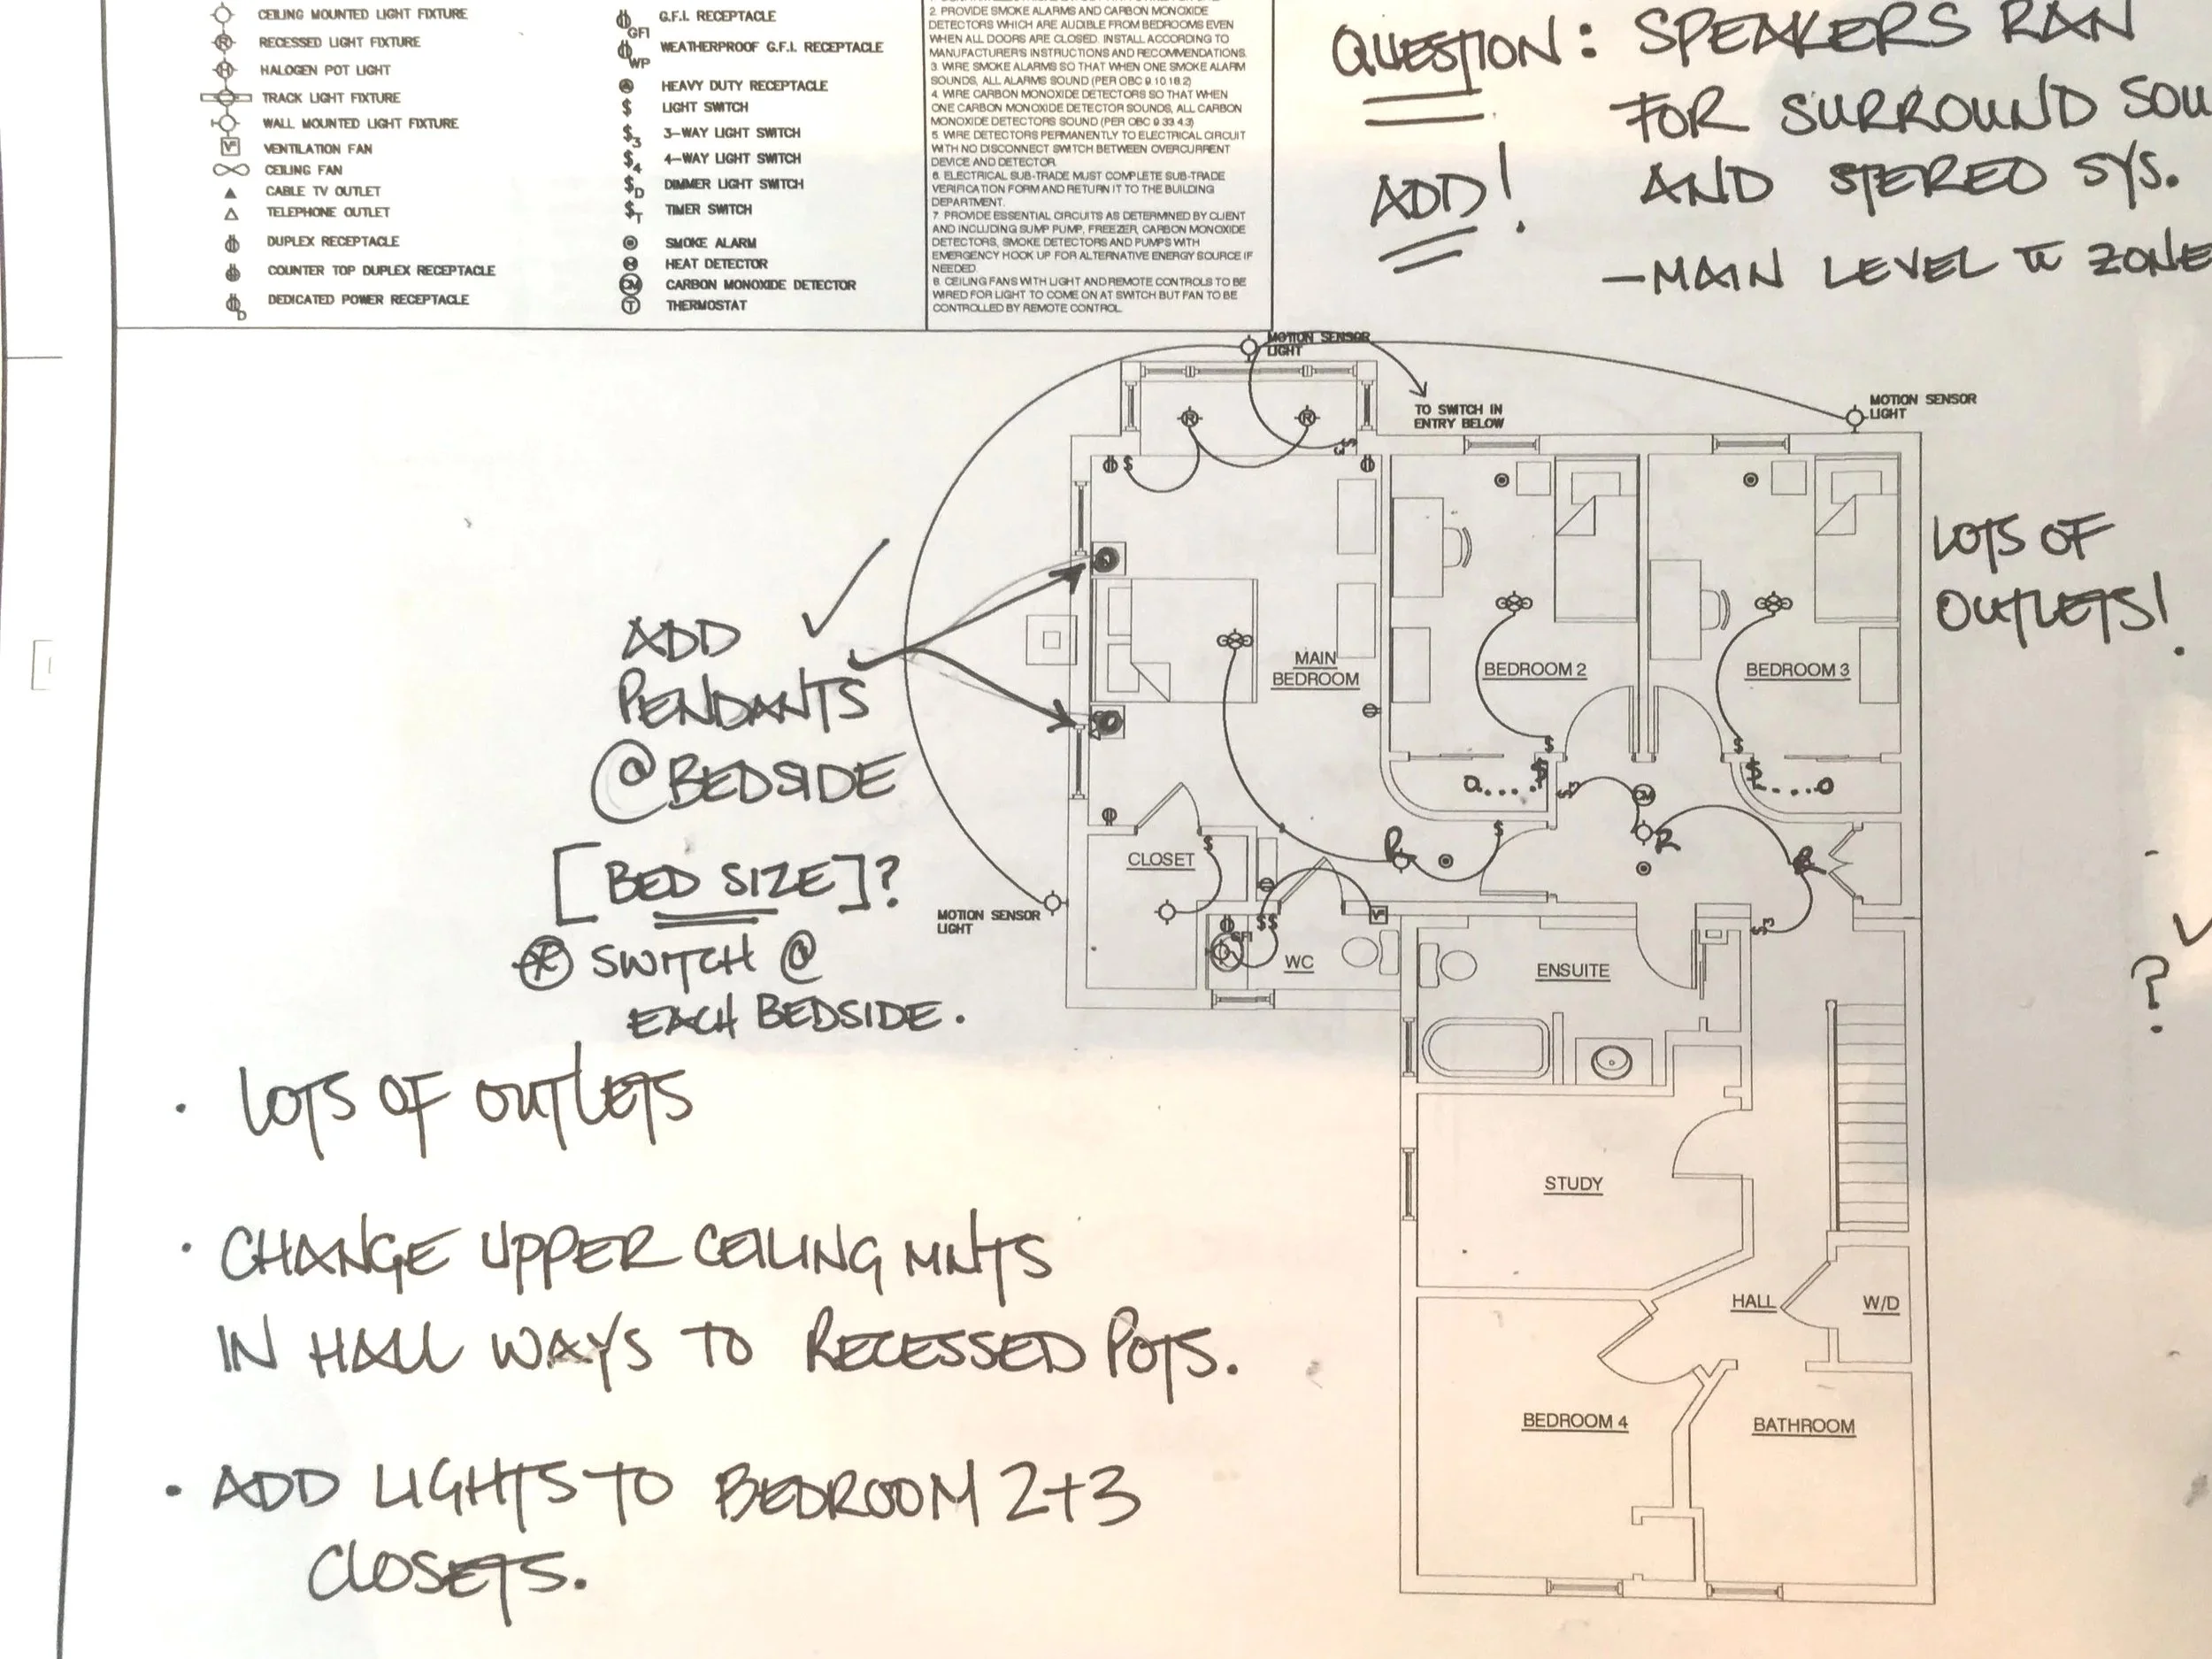 CEILING MOUNTED LIGHT FIXTURE
RECESSED LIGHT FIXTURE
HALOGEN POT LIGHT
TRACK LIGHT FIXTURE
WALL MOUNTED LIGHT FIXTURE
VENTILATION FAN
CEILING FAN
CABLE TV OUTLET
TELEPHONE OUTLET
DUPLEX RECEPTACLE
COUNTER TOP DUPLEX RECEPTACLE
DEDICATED POWER RECEPTACLE
GFI G.F.I. RECEPTACLE
WP WEATHERPROOF G.F.I. RECEPTACLE
HEAVY DUTY RECEPTACLE
$ LIGHT SWITCH
$3 3-WAY LIGHT SWITCH
$4 4-WAY LIGHT SWITCH
$D DIMMER LIGHT SWITCH
$T TIMER SWITCH
SMOKE ALARM
HEAT DETECTOR
CM CARBON MONOXIDE DETECTOR
T THERMOSTAT
2. PROVIDE SMOKE ALARMS AND CARBON MONOXIDE
DETECTORS WHICH ARE AUDIBLE FROM BEDROOMS EVEN
WHEN ALL DOORS ARE CLOSED. INSTALL ACCORDING TO
MANUFACTURERS INSTRUCTIONS AND RECOMMENDATIONS.
3. WIRE SMOKE ALARMS SO THAT WHEN ONE SMOKE ALARM
SOUNDS, ALL ALARMS SOUND (PER OBC 9.10.18.2)
4. WIRE CARBON MONOXIDE DETECTORS SO THAT WHEN
ONE CARBON MONOXIDE DETECTOR SOUNDS, ALL CARBON
MONOXIDE DETECTORS SOUND (PER OBC 9.33.4.3)
5. WIRE DETECTORS PERMANENTLY TO ELECTRICAL CIRCUIT
WITH NO DISCONNECT SWITCH BETWEEN OVERCURRENT
DEVICE AND DETECTOR.
6. ELECTRICAL SUB-TRADE MUST COMPLETE SUB-TRADE
VERIFICATION FORM AND RETURN IT TO THE BUILDING
DEPARTMENT.
7. PROVIDE ESSENTIAL CIRCUITS AS DETERMINED BY CLIENT
AND INCLUDING SUMP PUMP, FREEZER, CARBON MONOXIDE
DETECTORS, SMOKE DETECTORS AND PUMPS WITH
EMERGENCY HOOK UP FOR ALTERNATIVE ENERGY SOURCE IF
NEEDED.
8. CEILING FANS WITH LIGHT AND REMOTE CONTROLS TO BE
WIRED FOR LIGHT TO COME ON AT SWITCH BUT FAN TO BE
CONTROLLED BY REMOTE CONTROL.
QUESTION: SPEAKERS RAN
FOR SURROUND SOU
ADD! AND STEREO SYS.
-MAIN LEVEL ZONE
MOTION SENSOR
LIGHT
TO SWITCH IN
ENTRY BELOW
MOTION SENSOR
LIGHT
LOTS OF
OUTLETS!
ADD
PENDANTS
@BEDSIDE
[BED SIZE]?
SWITCH @
EACH BEDSIDE.
MAIN
BEDROOM
BEDROOM 2
BEDROOM 3
CLOSET
R
R
R
MOTION SENSOR
LIGHT
GFI
WC
ENSUITE
?
STUDY
HALL
W/D
BEDROOM 4
BATHROOM
· LOTS OF OUTLETS
· CHANGE UPPER CEILING MNTS
IN HALL WAYS TO RECESSED POTS.
· ADD LIGHTS TO BEDROOM 2+3
CLOSETS.